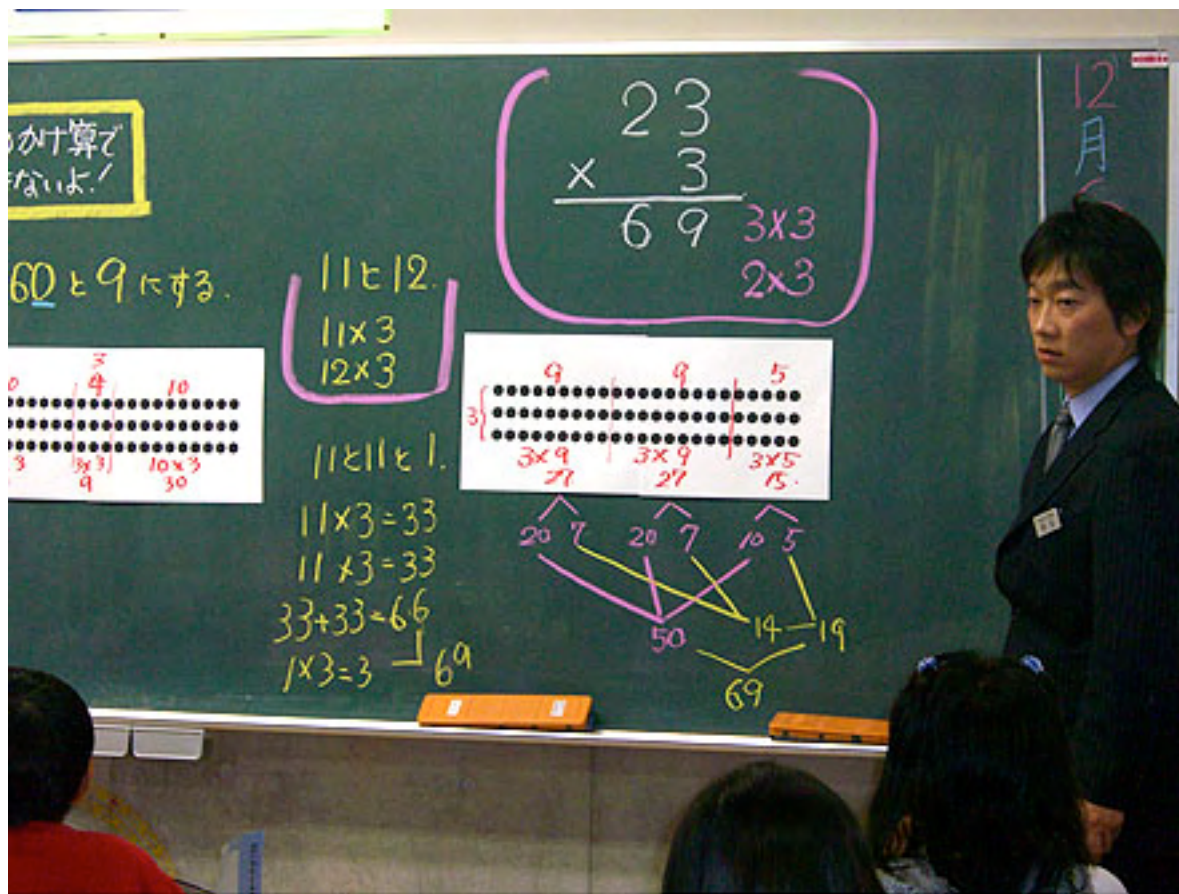 かけ算で
ないよ!
60と9にする.
3
4 10
3 3×3 10×3
9 30
11と12.
11×3
12×3
11と11と1.
11×3=33
11×3=33
33+33=66
1×3=3 69
23
× 3
69
3×3
2×3
9 9 5
3
3×9 3×9 3×5
27 27 15.
20 7 20 7 10 5
50 14 19
69
12
月